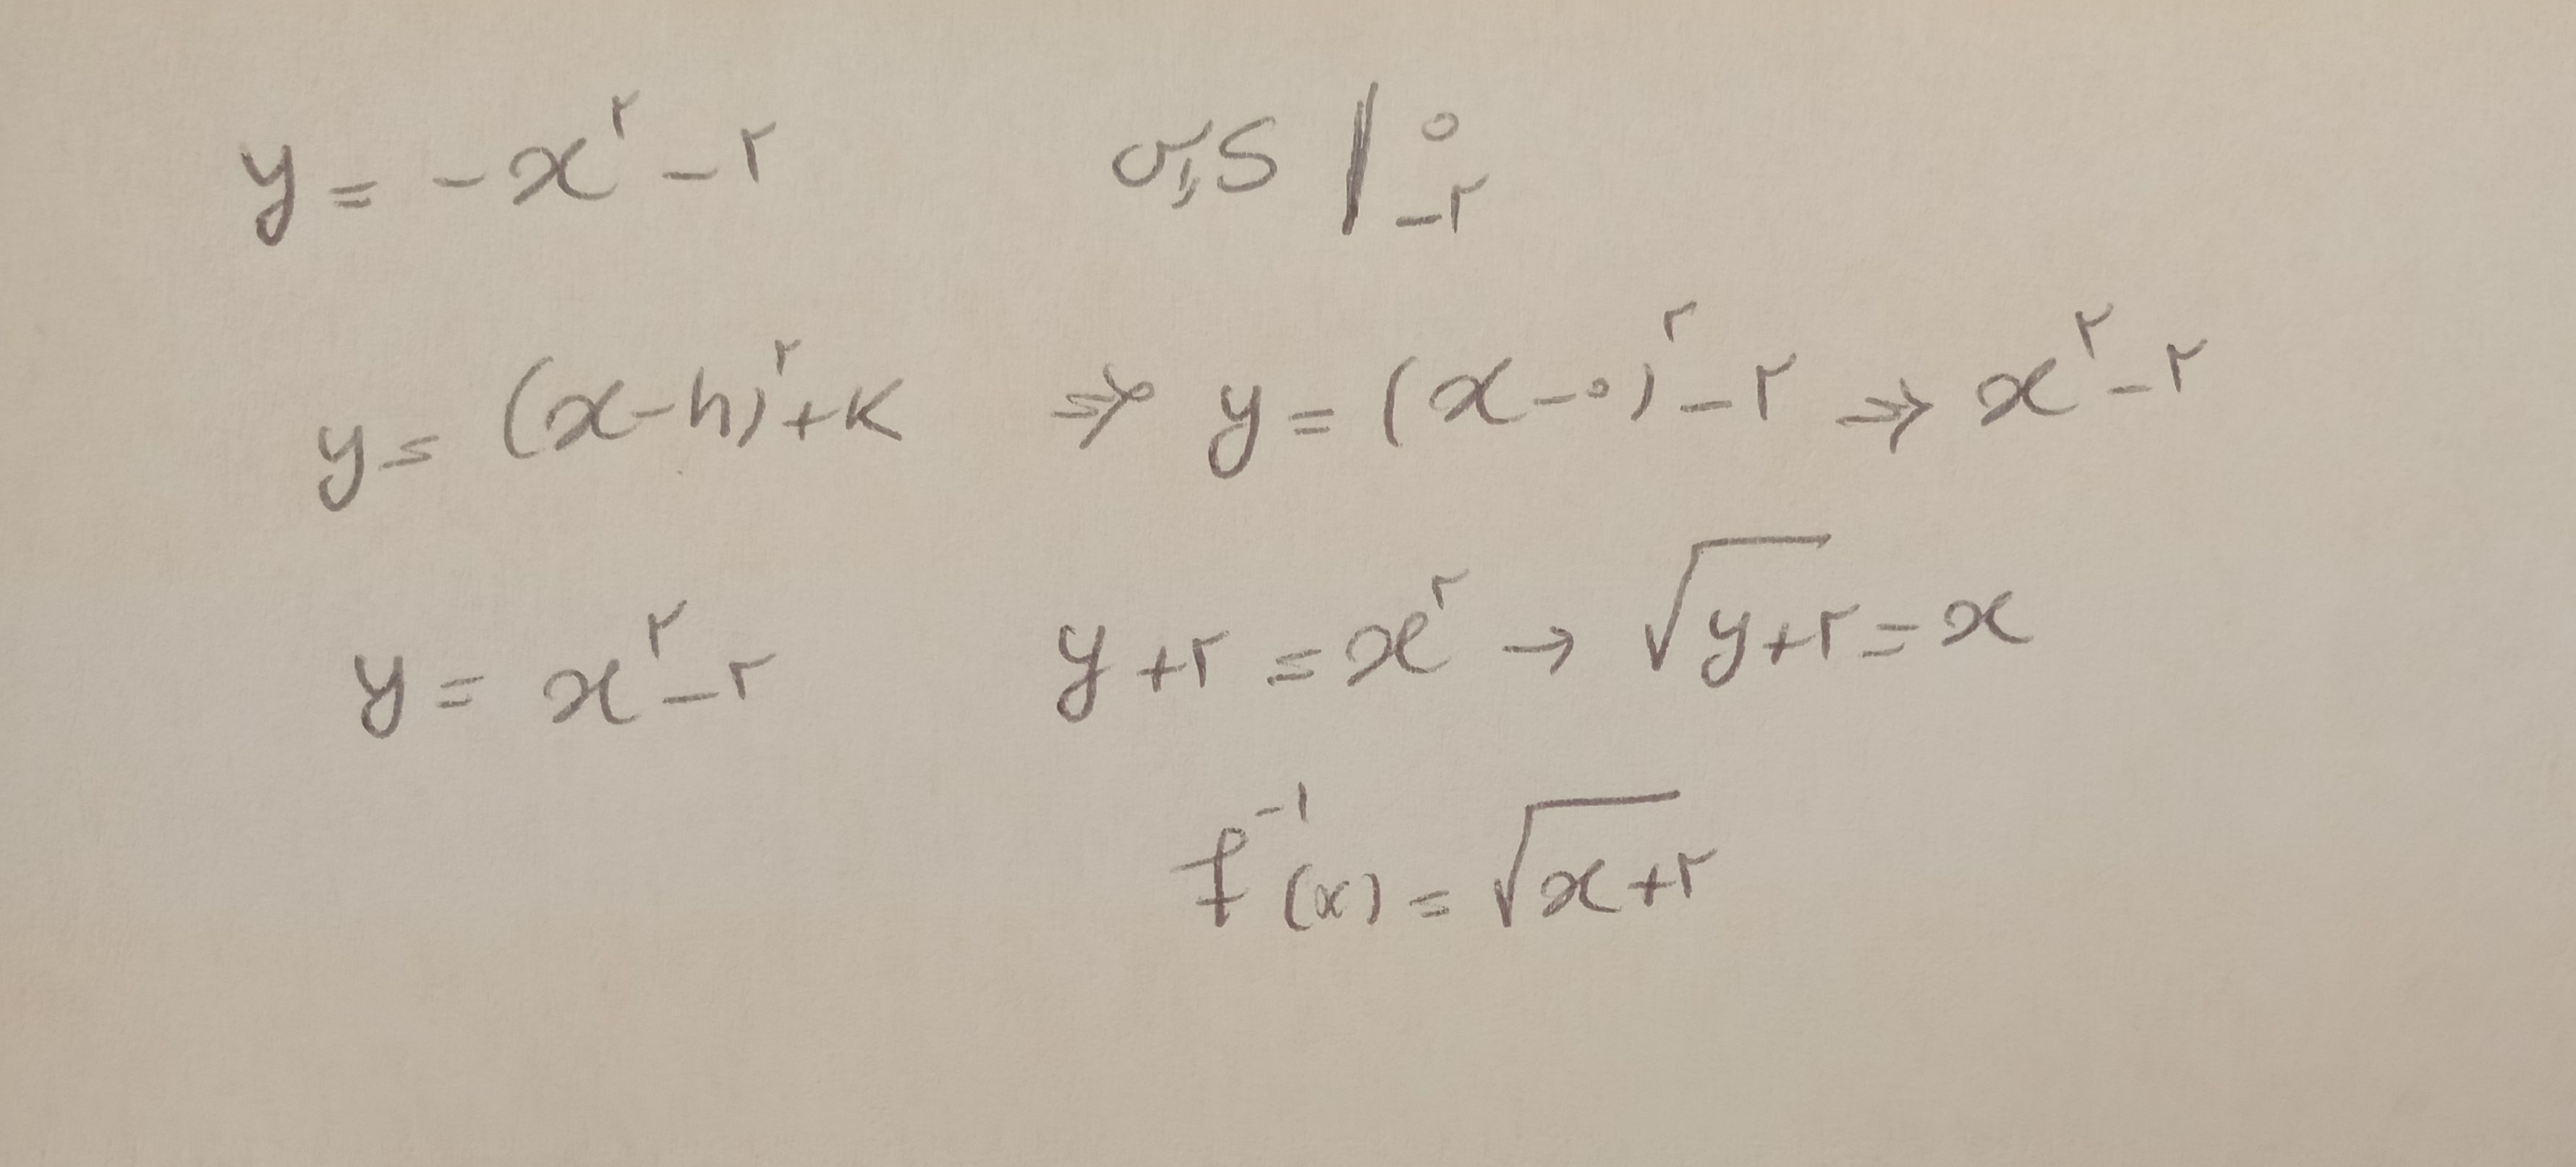 y = -x^۲ - ۲    رأس | ۰ / -۲
y = (x-h)^۲ + k ⇒ y = (x-۰)^۲ - ۲ → x^۲ - ۲
y = x^۲ - ۲    y + ۲ = x^۲ → √(y+۲) = x
f^-۱(x) = √(x+۲)